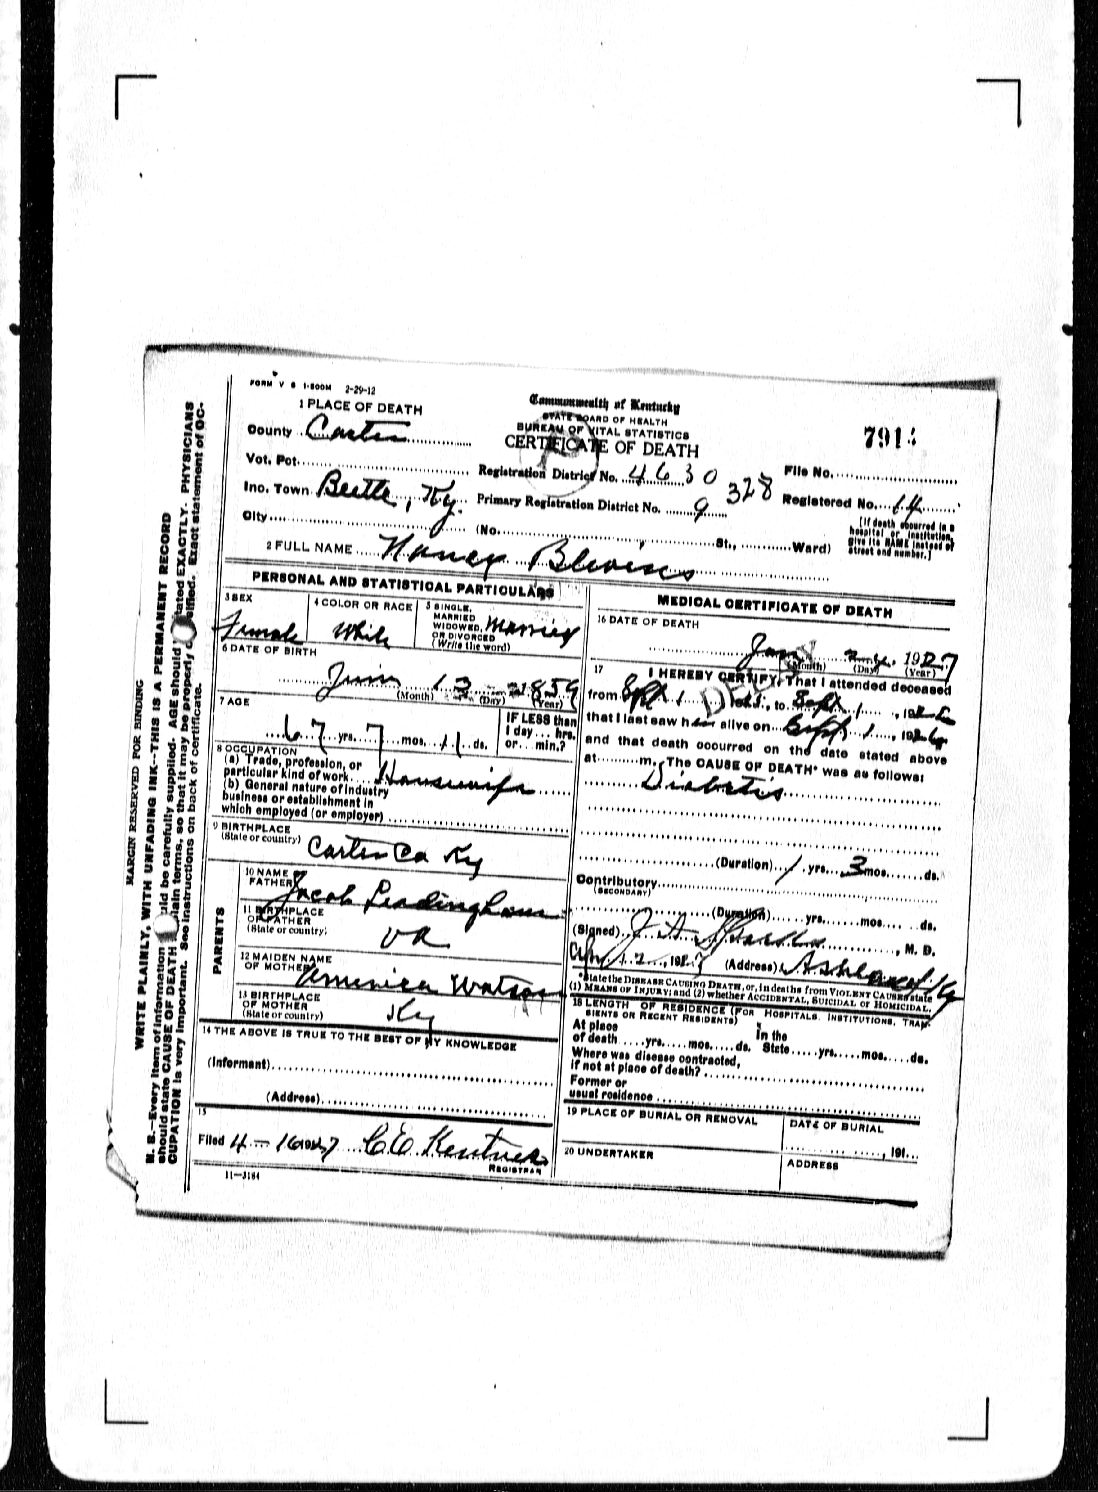 FORM V S 1-500M 2-29-12
1 PLACE OF DEATH
County Carter
Vot. Pct.
Inc. Town Beetle, Ky.
City
Commonwealth of Kentucky
STATE BOARD OF HEALTH
BUREAU OF VITAL STATISTICS
CERTIFICATE OF DEATH
Registration District No. 4630
Primary Registration District No. 9
328
(No. St., Ward)
File No.
Registered No. 14
[If death occurred in a
hospital or institution,
give its NAME instead of
street and number.]
2 FULL NAME Nancy Blevins
PERSONAL AND STATISTICAL PARTICULARS
3 SEX
Female
4 COLOR OR RACE
White
5 SINGLE,
MARRIED
WIDOWED,
OR DIVORCED
(Write the word)
Married
6 DATE OF BIRTH
13 1859
(Month) (Day) (Year)
7 AGE
67 yrs. 7 mos. 11 ds.
IF LESS than
1 day ... hrs.
or ... min.?
8 OCCUPATION
(a) Trade, profession, or
particular kind of work Housewife
(b) General nature of industry
business or establishment in
which employed (or employer)
9 BIRTHPLACE
(State or country)
Carter Co Ky
PARENTS
10 NAME
FATHER
Jacob Leadingham
11 BIRTHPLACE
OF FATHER
(State or country)
Va
12 MAIDEN NAME
OF MOTHER America Watson
13 BIRTHPLACE
OF MOTHER
(State or country)
Ky
14 THE ABOVE IS TRUE TO THE BEST OF MY KNOWLEDGE
(Informant)
(Address)
15
Filed 4-16 1927 C.C. Kentner
REGISTRAR
11-3184
MEDICAL CERTIFICATE OF DEATH
16 DATE OF DEATH
Jan 1927
(Month) (Day) (Year)
DELAY
17 I HEREBY CERTIFY, That I attended deceased
from Sept 1, to Sept 1, 1926
that I last saw her alive on Sept 1, 1926
and that death occurred on the date stated above
at m. The CAUSE OF DEATH* was as follows:
Diabetis
(Duration) 1 yrs. 3 mos. ds.
Contributory
(SECONDARY)
(Duration) yrs. mos. ds.
(Signed) J A, M. D.
Apr 12, 1927 (Address) Ashland Ky
*State the DISEASE CAUSING DEATH, or, in deaths from VIOLENT CAUSES state
(1) MEANS OF INJURY; and (2) whether ACCIDENTAL, SUICIDAL or HOMICIDAL.
18 LENGTH OF RESIDENCE (FOR HOSPITALS, INSTITUTIONS, TRANSIENTS OR RECENT RESIDENTS)
At place
of death yrs. mos. ds.
In the
State yrs. mos. ds.
Where was disease contracted,
if not at place of death?
Former or
usual residence
19 PLACE OF BURIAL OR REMOVAL
DATE OF BURIAL
, 191
20 UNDERTAKER
ADDRESS
MARGIN RESERVED FOR BINDING
WRITE PLAINLY, WITH UNFADING INK---THIS IS A PERMANENT RECORD
N. B.—Every item of information should be carefully supplied. AGE should stated EXACTLY. PHYSICIANS
should state CAUSE OF DEATH plain terms, so that it may be properly classified. Exact statement of OC-
CUPATION is very important. See instructions on back of certificate.